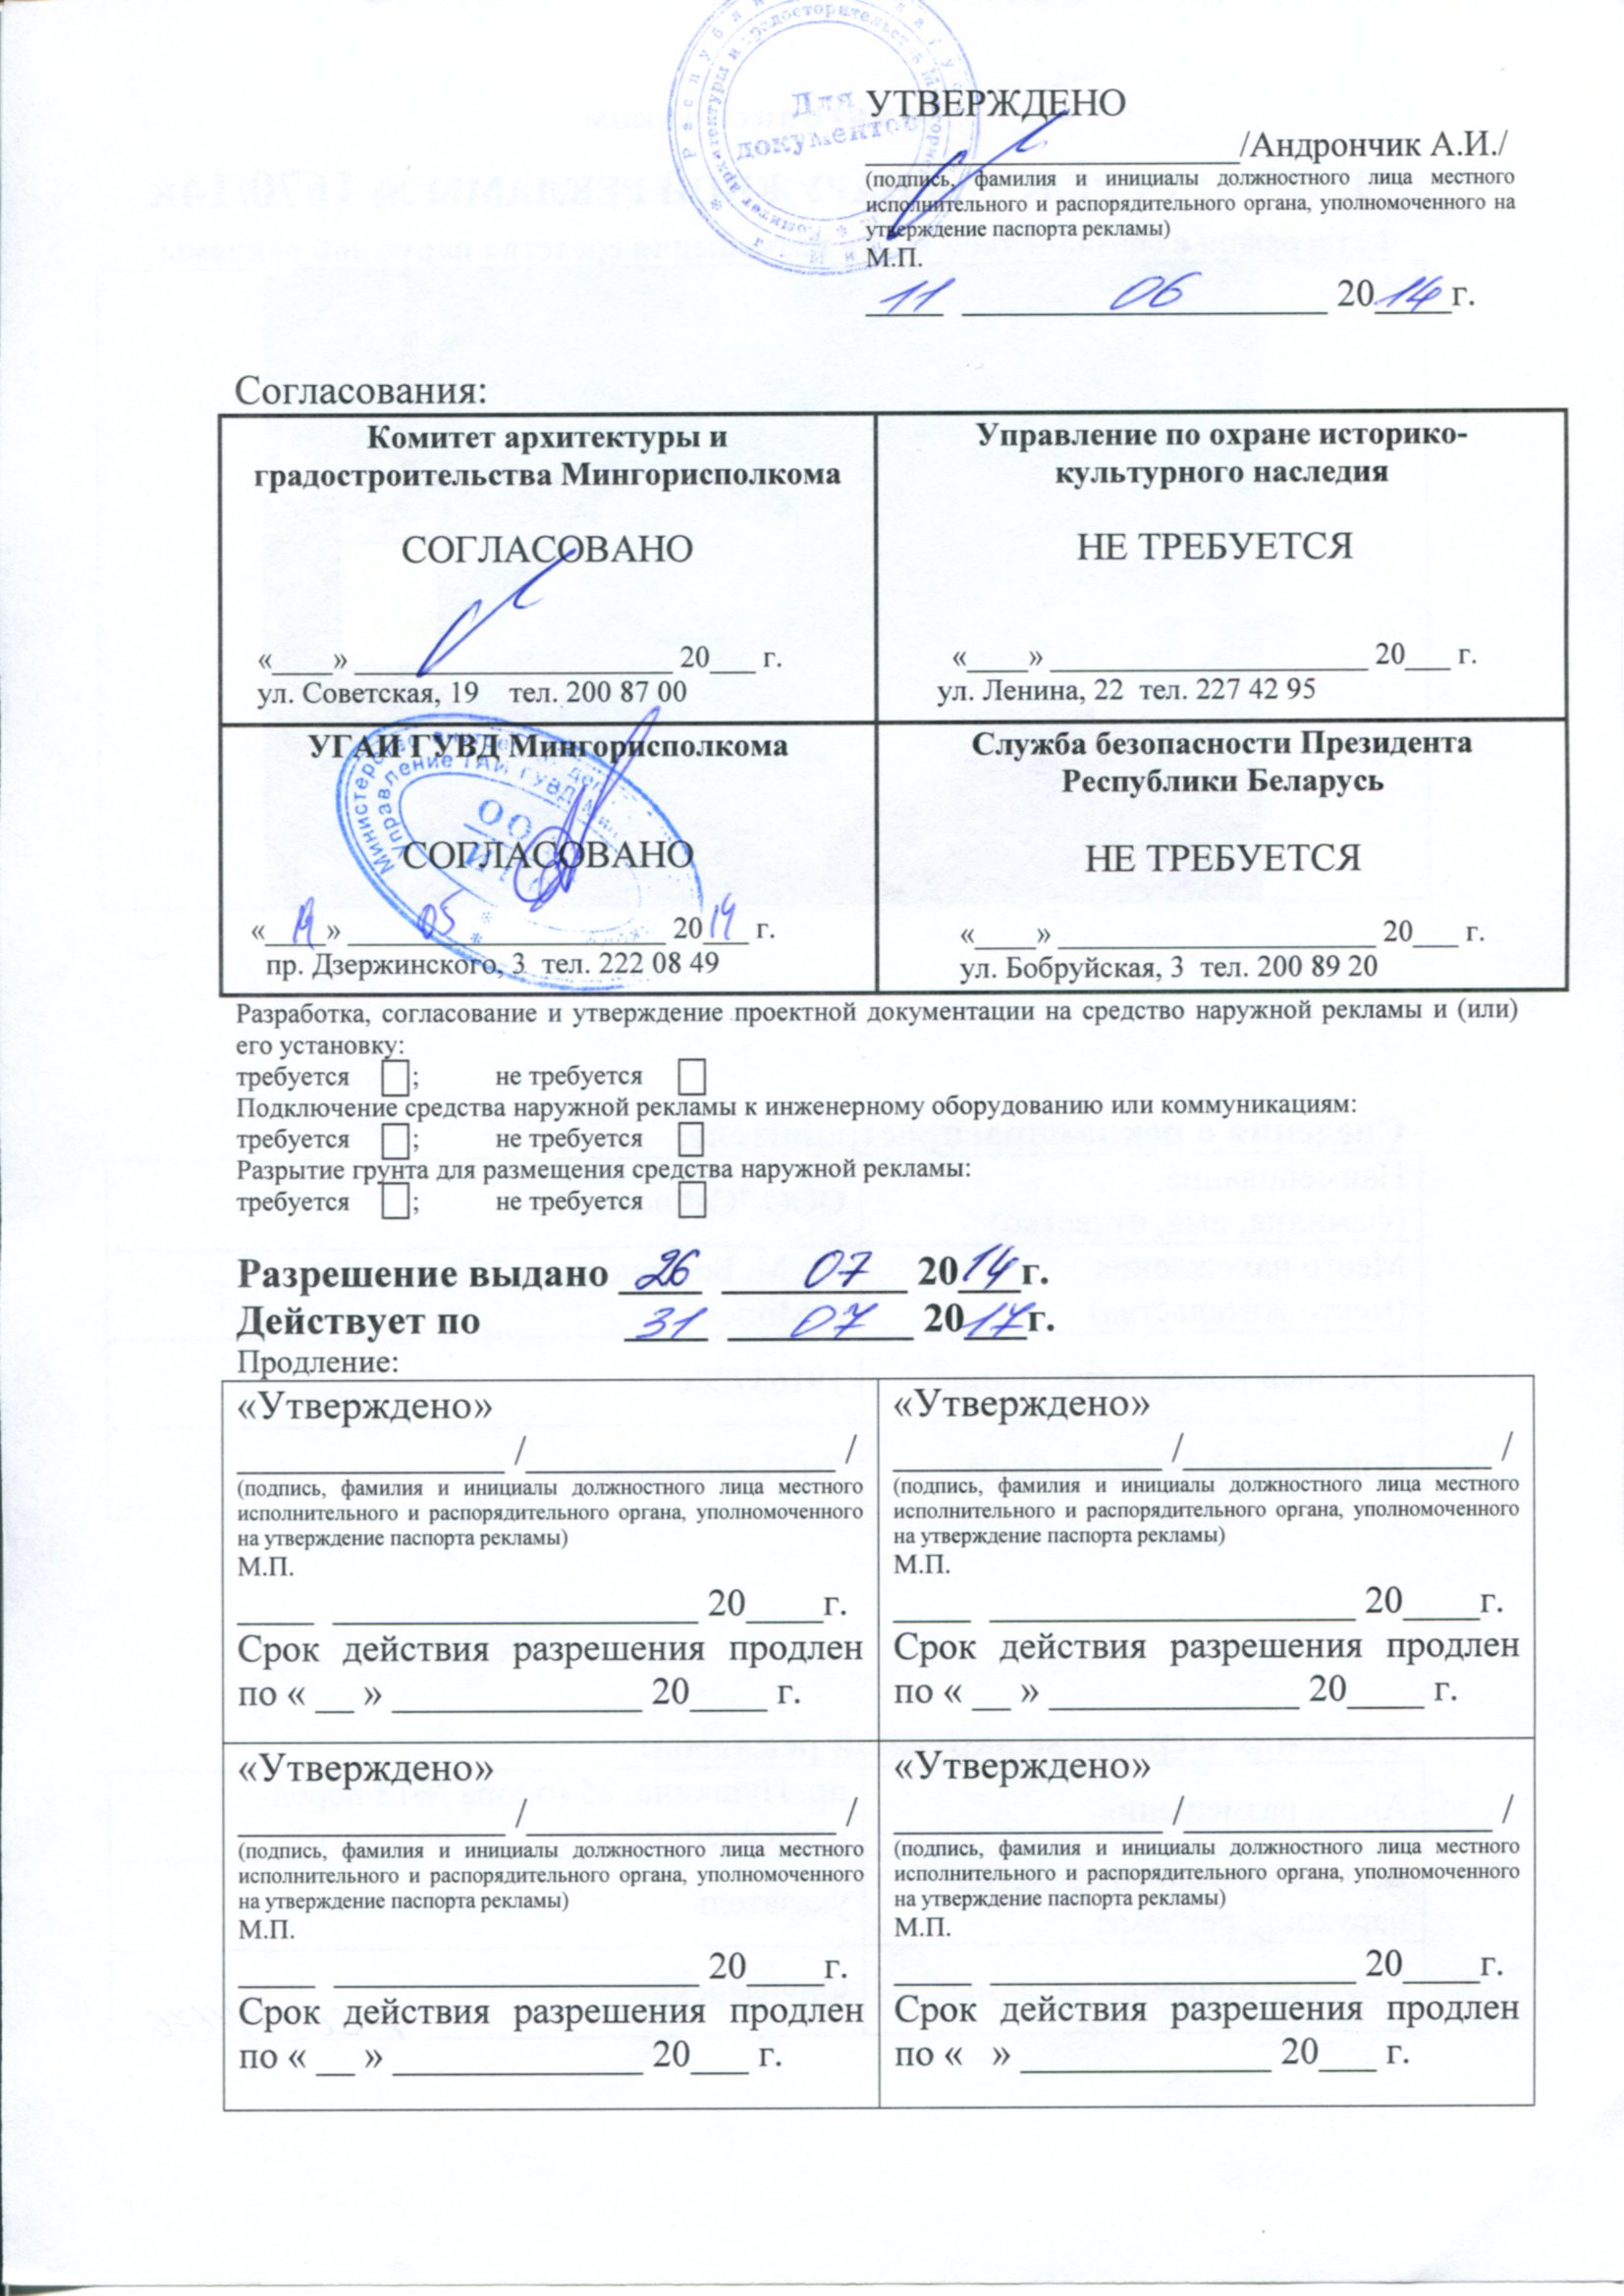 Для
документов
УТВЕРЖДЕНО
/Андрончик А.И./
(подпись, фамилия и инициалы должностного лица местного
исполнительного и распорядительного органа, уполномоченного на
утверждение паспорта рекламы)
М.П.
11 06 2014г.
Согласования:
Комитет архитектуры и
градостроительства Мингорисполкома
СОГЛАСОВАНО
«____» ____________________ 20___ г.
ул. Советская, 19 тел. 200 87 00
Управление по охране историко-
культурного наследия
НЕ ТРЕБУЕТСЯ
«____» ____________________ 20___ г.
ул. Ленина, 22 тел. 227 42 95
УГАИ ГУВД Мингорисполкома
Управление ГАИ ГУВД
СОГЛАСОВАНО
«19» 05 2014 г.
пр. Дзержинского, 3 тел. 222 08 49
Служба безопасности Президента
Республики Беларусь
НЕ ТРЕБУЕТСЯ
«____» ____________________ 20___ г.
ул. Бобруйская, 3 тел. 200 89 20
Разработка, согласование и утверждение проектной документации на средство наружной рекламы и (или)
его установку:
требуется ; не требуется
Подключение средства наружной рекламы к инженерному оборудованию или коммуникациям:
требуется ; не требуется
Разрытие грунта для размещения средства наружной рекламы:
требуется ; не требуется
Разрешение выдано 26 07 2014г.
Действует по 31 07 2017г.
Продление:
«Утверждено»
______________ /________________ /
(подпись, фамилия и инициалы должностного лица местного
исполнительного и распорядительного органа, уполномоченного
на утверждение паспорта рекламы)
М.П.
____ ___________________ 20____г.
Срок действия разрешения продлен
по « __ » _____________ 20____ г.
«Утверждено»
______________ /________________ /
(подпись, фамилия и инициалы должностного лица местного
исполнительного и распорядительного органа, уполномоченного
на утверждение паспорта рекламы)
М.П.
____ ___________________ 20____г.
Срок действия разрешения продлен
по « __ » _____________ 20____ г.
«Утверждено»
______________ /________________ /
(подпись, фамилия и инициалы должностного лица местного
исполнительного и распорядительного органа, уполномоченного
на утверждение паспорта рекламы)
М.П.
____ ___________________ 20____г.
Срок действия разрешения продлен
по « __ » _____________ 20___ г.
«Утверждено»
______________ /________________ /
(подпись, фамилия и инициалы должностного лица местного
исполнительного и распорядительного органа, уполномоченного
на утверждение паспорта рекламы)
М.П.
____ ___________________ 20____г.
Срок действия разрешения продлен
по « » _____________ 20___ г.